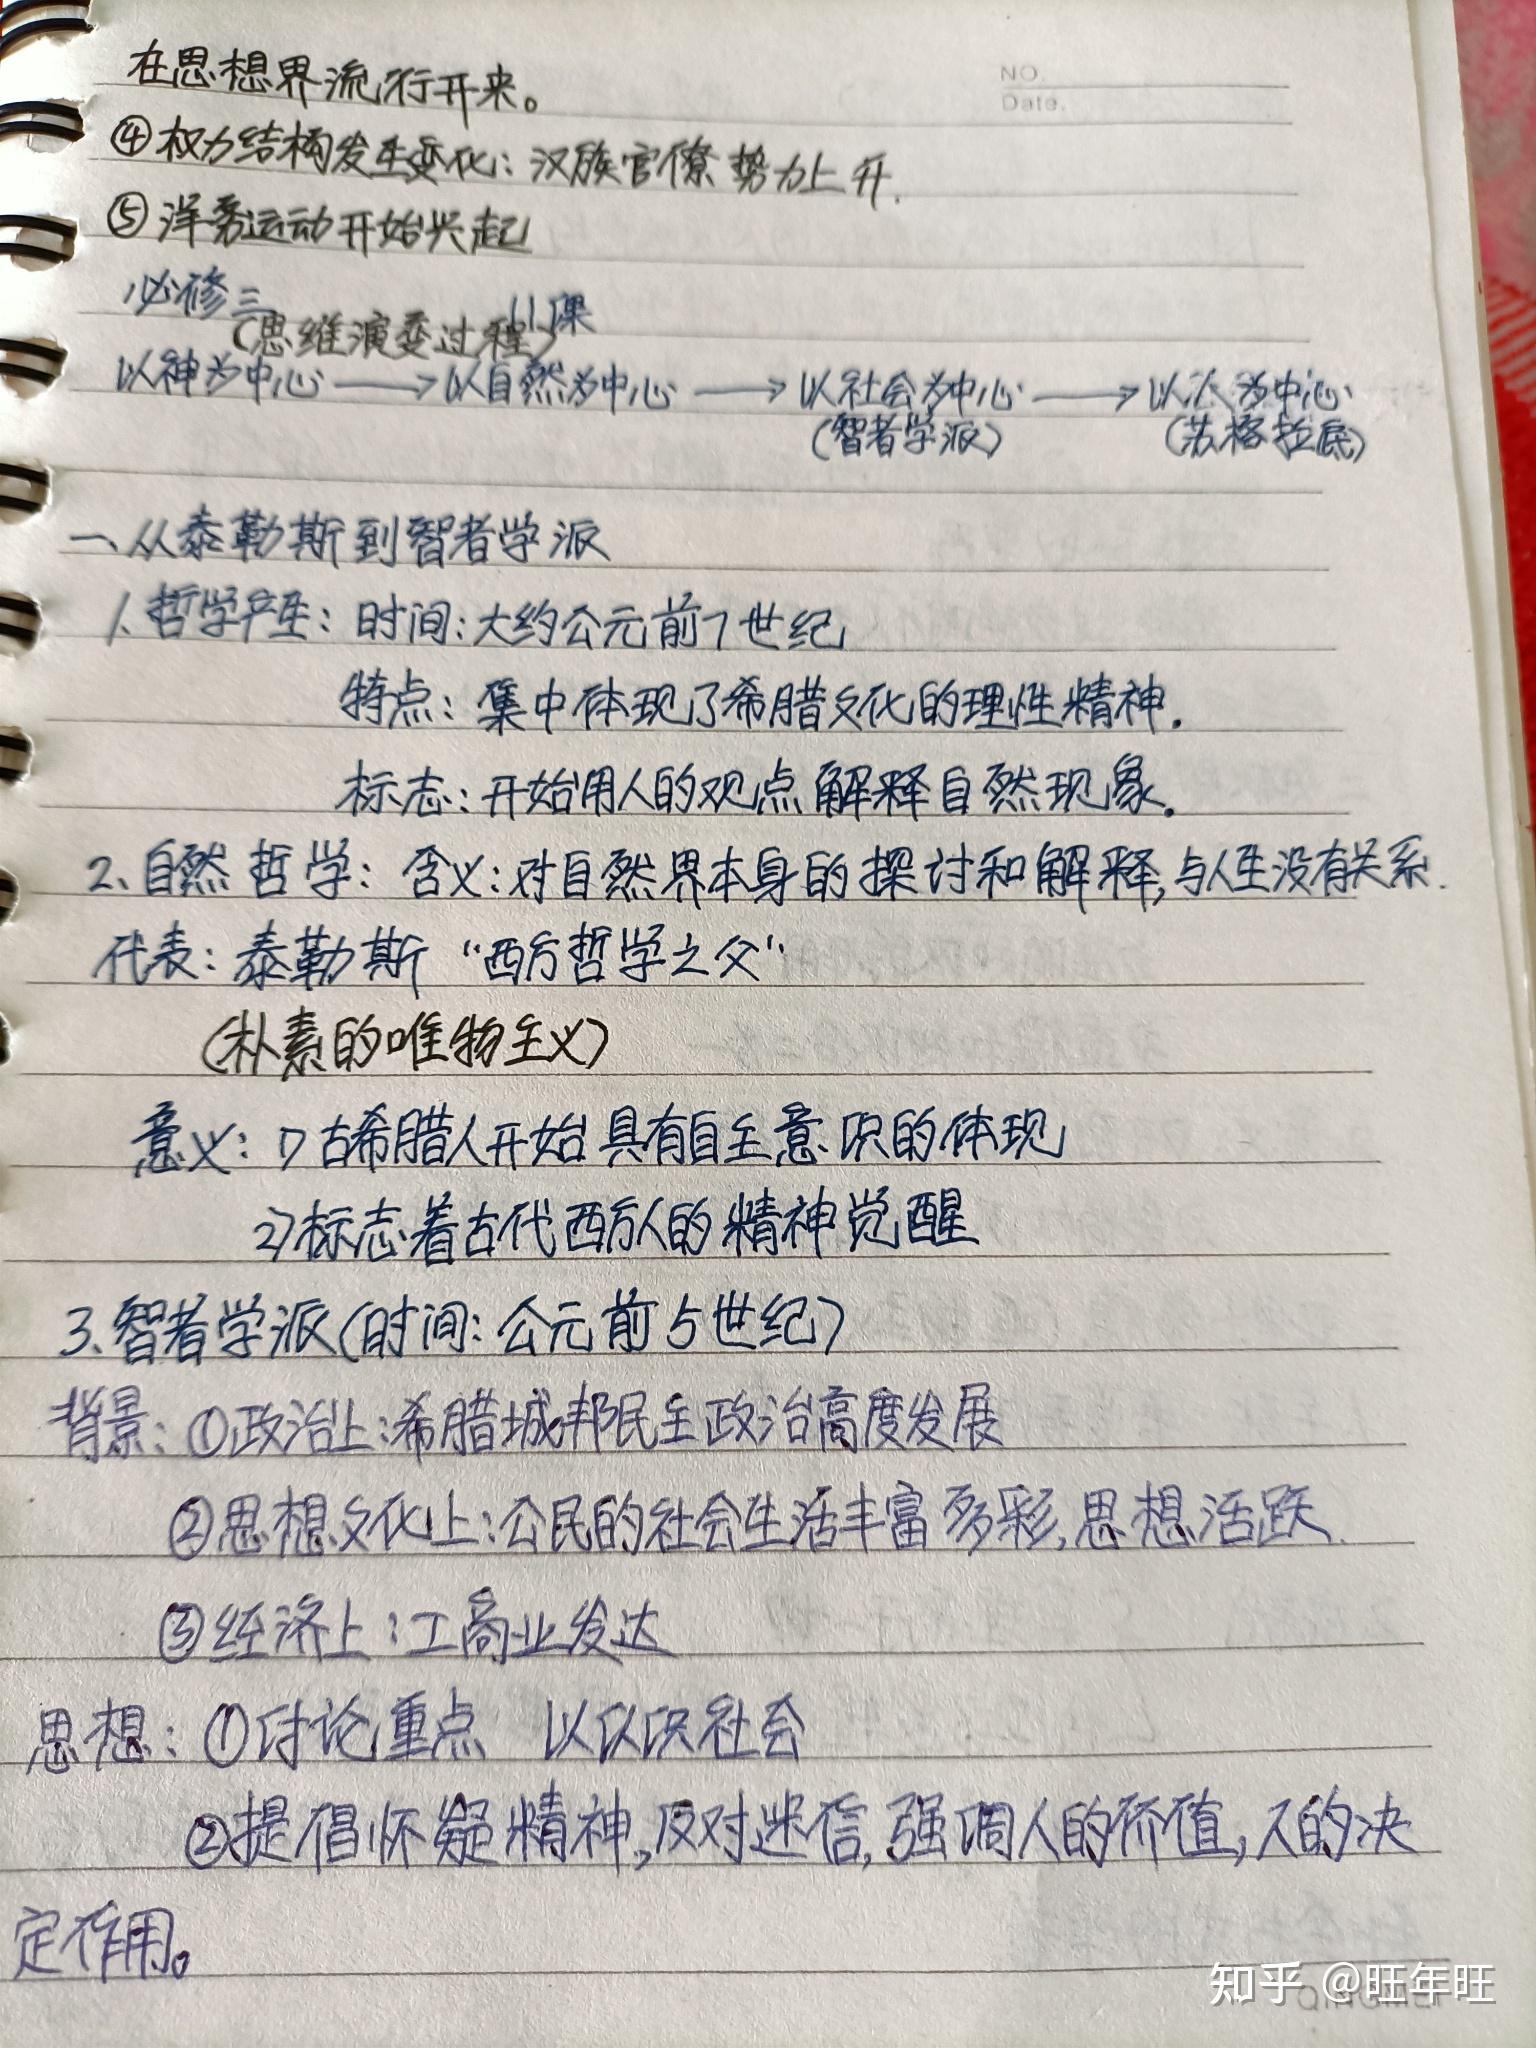 NO.
Date.
在思想界流行开来。
④权力结构发生变化：汉族官僚势力上升.
⑤洋务运动开始兴起
必修三 11课
(思维演变过程)
以神为中心→以自然为中心→以社会为中心→以人为中心
(智者学派) (苏格拉底)
一、从泰勒斯到智者学派
1.哲学产生：时间：大约公元前7世纪
特点：集中体现了希腊文化的理性精神.
标志：开始用人的观点解释自然现象.
2.自然哲学：含义：对自然界本身的探讨和解释,与人生没有关系.
代表：泰勒斯“西方哲学之父”
(朴素的唯物主义)
意义：1)古希腊人开始具有自主意识的体现
2)标志着古代西方人的精神觉醒
3.智者学派(时间：公元前5世纪)
背景：①政治上：希腊城邦民主政治高度发展
②思想文化上：公民的社会生活丰富多彩,思想活跃.
③经济上：工商业发达
思想：①讨论重点 以认识社会
②提倡怀疑精神,反对迷信,强调人的价值,人的决
定作用。
知乎 @旺年旺